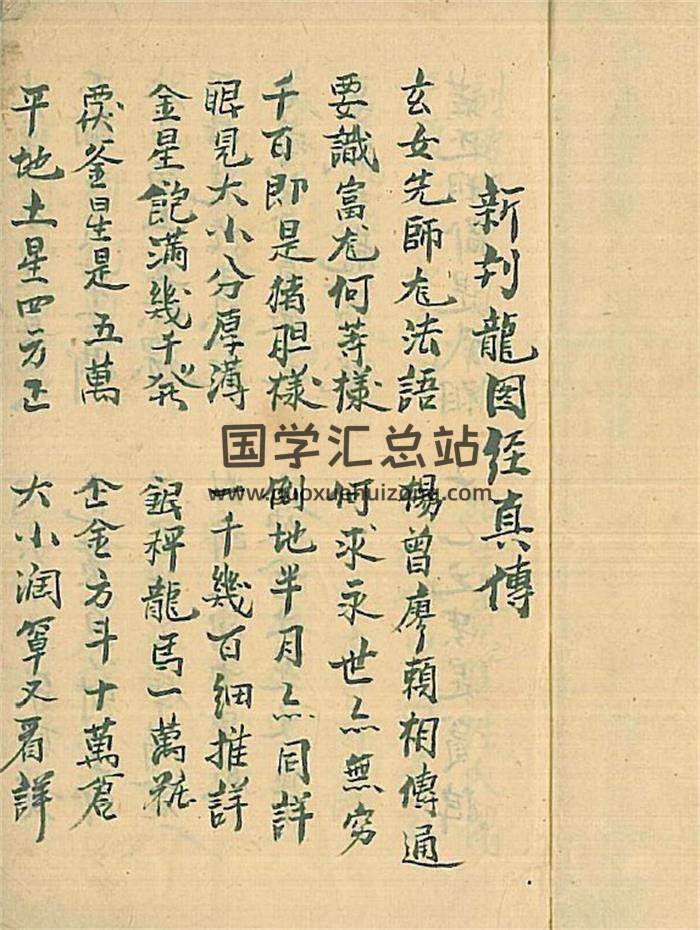 新刋龍图经真傳
玄女先師尨法語 楊曾廖頼相傳通
要識富尨何等樣 何求永世亦無穷
千百即是猪胆樣 倒地半月亦同詳
眼見大小分厚薄 千幾百細推詳
金星飽滿幾千 銀秤龍馬一萬
釜星是五萬 企金方斗十萬倉
平地土星四方正 大小润窄又看詳
国学汇总站
www.guoxuehuizong.com